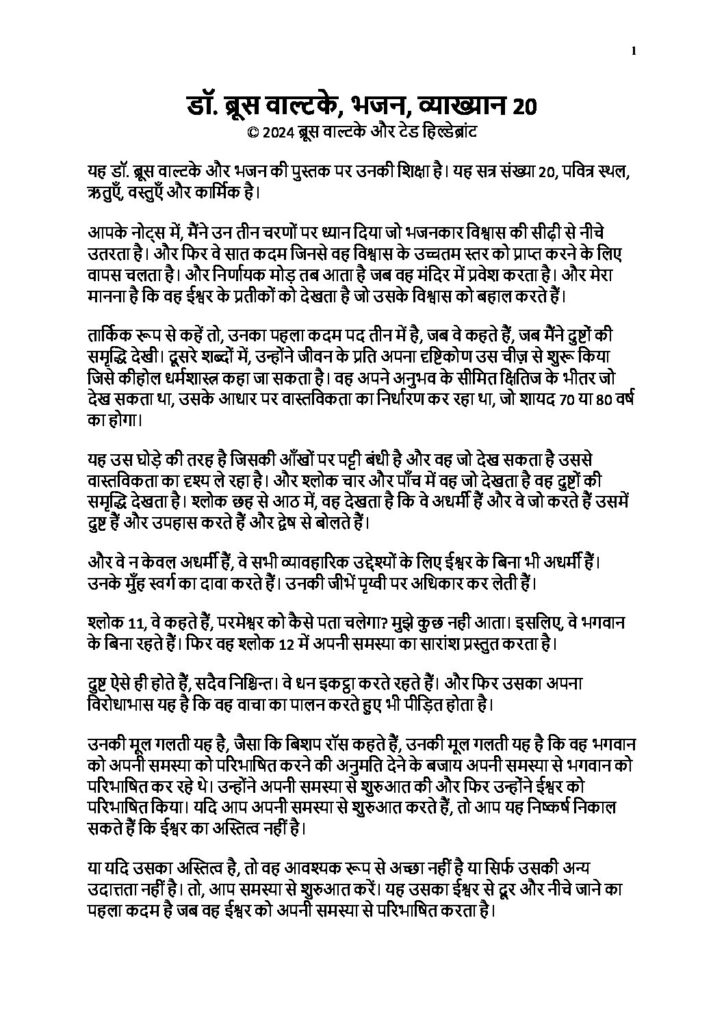 1
डॉ. ब्रूस वाल्टके, भजन, व्याख्यान 20
© 2024 ब्रूस वाल्टके और टेड हिल्डेब्रांट
यह डॉ. ब्रूस वाल्टके और भजन की पुस्तक पर उनकी शिक्षा है। यह सत्र संख्या 20, पवित्र स्थल,
ऋतुएँ, वस्तुएँ और कार्मिक है।
आपके नोट्स में, मैंने उन तीन चरणों पर ध्यान दिया जो भजनकार विश्वास की सीढ़ी से नीचे
उतरता है। और फिर वे सात कदम जिनसे वह विश्वास के उच्चतम स्तर को प्राप्त करने के लिए
वापस चलता है। और निर्णायक मोड़ तब आता है जब वह मंदिर में प्रवेश करता है। और मेरा
मानना है कि वह ईश्वर के प्रतीकों को देखता है जो उसके विश्वास को बहाल करते हैं।
तार्किक रूप से कहें तो, उनका पहला कदम पद तीन में है, जब वे कहते हैं, जब मैंने दुष्टों की
समृद्धि देखी। दूसरे शब्दों में, उन्होंने जीवन के प्रति अपना दृष्टिकोण उस चीज़ से शुरू किया
जिसे कीहोल धर्मशास्त्र कहा जा सकता है। वह अपने अनुभव के सीमित क्षितिज के भीतर जो
देख सकता था, उसके आधार पर वास्तविकता का निर्धारण कर रहा था, जो शायद 70 या 80 वर्ष
का होगा।
यह उस घोड़े की तरह है जिसकी आँखों पर पट्टी बंधी है और वह जो देख सकता है उससे
वास्तविकता का दृश्य ले रहा है। और श्लोक चार और पाँच में वह जो देखता है वह दुष्टों की
समृद्धि देखता है। श्लोक छह से आठ में, वह देखता है कि वे अधर्मी हैं और वे जो करते हैं उसमें
दुष्ट हैं और उपहास करते हैं और द्वेष से बोलते हैं।
और वे न केवल अधर्मी हैं, वे सभी व्यावहारिक उद्देश्यों के लिए ईश्वर के बिना भी अधर्मी हैं।
उनके मुँह स्वर्ग का दावा करते हैं। उनकी जीभें पृथ्वी पर अधिकार कर लेती हैं।
श्लोक 11, वे कहते हैं, परमेश्वर को कैसे पता चलेगा? मुझे कुछ नही आता। इसलिए, वे भगवान
के बिना रहते हैं। फिर वह श्लोक 12 में अपनी समस्या का सारांश प्रस्तुत करता है।
दुष्ट ऐसे ही होते हैं, सदैव निश्चिन्त। वे धन इकट्ठा करते रहते हैं। और फिर उसका अपना
विरोधाभास यह है कि वह वाचा का पालन करते हुए भी पीड़ित होता है।
उनकी मूल गलती यह है, जैसा कि बिशप रॉस कहते हैं, उनकी मूल गलती यह है कि वह भगवान
को अपनी समस्या को परिभाषित करने की अनुमति देने के बजाय अपनी समस्या से भगवान को
परिभाषित कर रहे थे। उन्होंने अपनी समस्या से शुरुआत की और फिर उन्होंने ईश्वर को
परिभाषित किया। यदि आप अपनी समस्या से शुरुआत करते हैं, तो आप यह निष्कर्ष निकाल
सकते हैं कि ईश्वर का अस्तित्व नहीं है।
या यदि उसका अस्तित्व है, तो वह आवश्यक रूप से अच्छा नहीं है या सिर्फ उसकी अन्य
उदात्तता नहीं है। तो, आप समस्या से शुरुआत करें। यह उसका ईश्वर से दूर और नीचे जाने का
पहला कदम है जब वह ईश्वर को अपनी समस्या से परिभाषित करता है।